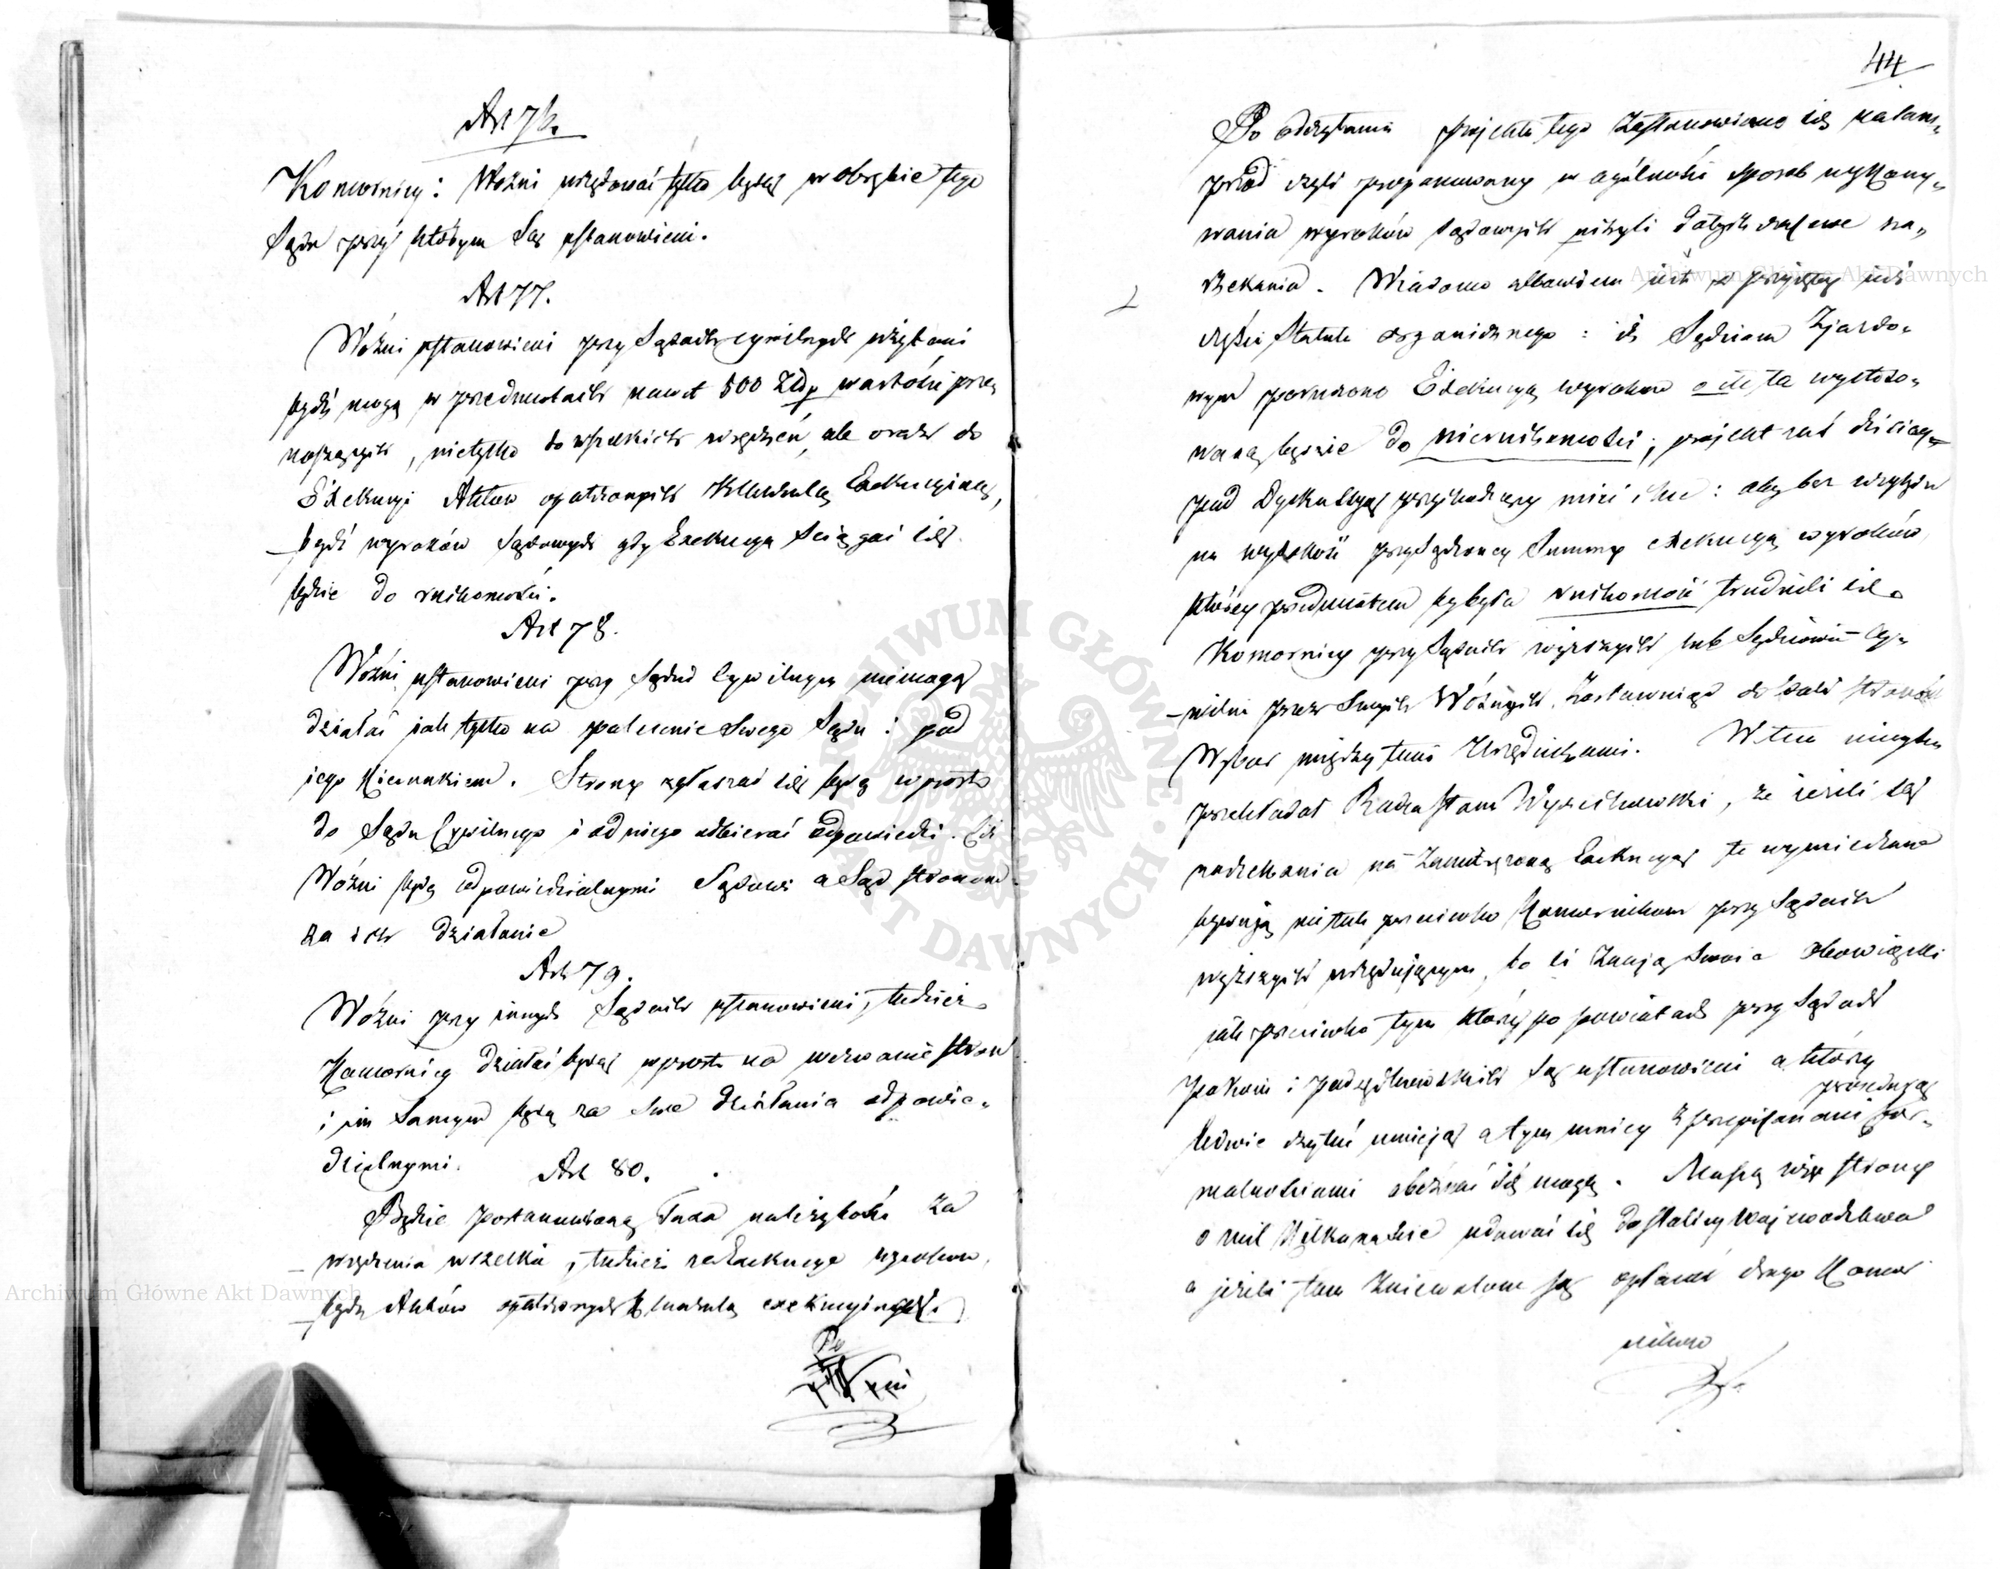 Art 76.
Komornicy i Woźni urzędować tylko będą w obrębie tego
Sądu przy którym są ustanowieni.
Art 77.
Woźni ustanowieni przy Sądach cywilnych użytemi
być mogą w przedmiotach nawet 500 Złp wartości prze
noszących, nietylko do wszelkich wręczeń, ale oraz do
Exekucyi Aktów opatrzonych Klauzulą Exekucyiną,
bądź wyroków Sądowych gdy Exekucya ściągać się
będzie do ruchomości.
Art 78.
Woźni ustanowieni przy Sądzie Cywilnym niemogą
działać jak tylko na polecenie swego Sądu i pod
jego kierunkiem. Strony zgłaszać się będą wprost
do Sądu Cywilnego i od niego odbierać odpowiedzi. Ci
Woźni będą odpowiedzialnymi Sądowi a Sąd stronom
za ich działanie
Art 79.
Woźni przy innych Sądach ustanowieni, tudzież
Komornicy działać będą wprost na wezwanie stron
i im samym będą za swe działania odpowie-
dzialnymi.
Art 80.
Będzie postanowioną Taxa należytości za
wręczenia wszelkie, tudzież za Exekucye wyroków,
bądź Aktów opatrzonych Klauzulą exekucyiną.
Po
44
Po odczytaniu projektu tego zastanowiono się naam-
przód czyli proponowany w ogólności sposób wykony-
wania wyroków Sądowych uchyli dotychczasowe na-
rzekania. Wiadomo albowiem jest z przyjętej już
części Statutu organicznego: iż Sędziom Zjazdo-
wym poruczono Exekucyą wyroków o ile ta wystoso-
waną będzie do nieruchomości; projekt zaś dzisiaj
pod Dyskussyą przychodzący mieć chce: aby bez względu
na wysokość przysądzonej Summy exekucyą wyroków,
której przedmiotem byłaby ruchomość trudnili się
Komornicy przy Sądach wyższych lub Sędziowie Cy-
wilni przez swych Woźnych, zostawując do woli stronom
Wybór między temi Urzędnikami. W tem miejscu
przekładał Radca Stanu Wyczechowski, że jeżeli są
narzekania na Exekucyą te wymierzane
bywają nie tak przeciwko Komornikom przy Sądach
wyższych urzędującym, bo ci znają swoje obowiązki
jak przeciwko tym którzy po powiatach przy Sądach
Pokoju i Podsędkowskich są ustanowieni a którzy
ledwie czytać umieją a tym mniej z przepisanemi procedurą for-
malnościami obeznać się mogą. Muszą więc strony
o mil kilkanaście udawać się do stolicy Województwa
a jeżeli tam zniewolone są opłacać drogo Komor
ników